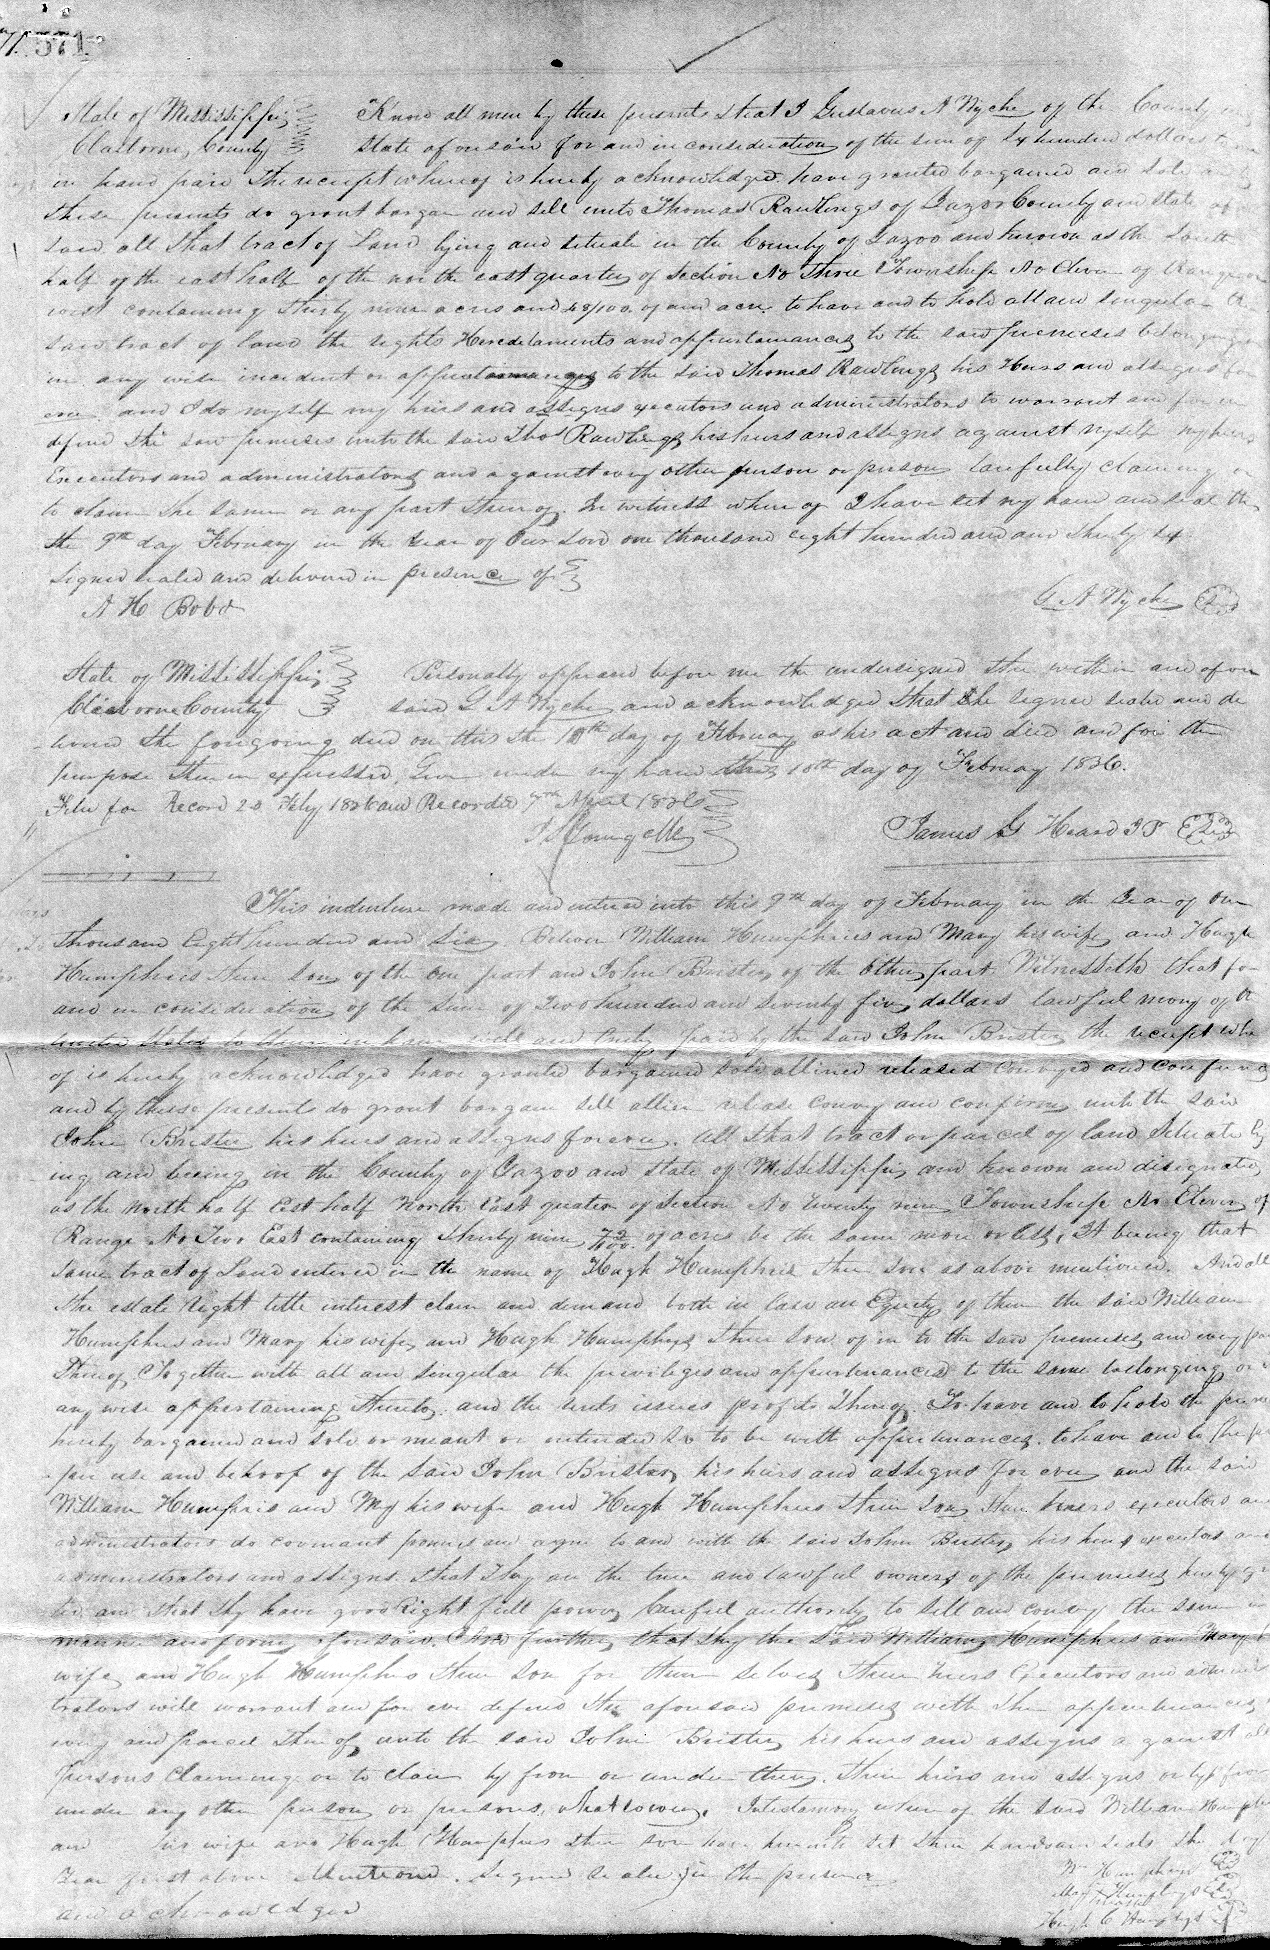 571
State of Mississippi Know all men by these presents that I Gustavus A Nyche of the County
Claiborne County State aforesaid for and in consideration of the sum of hundred dollars
in hand paid the receipt whereof is hereby acknowledged have granted bargained and sold and
these presents do grant bargan and sell unto Thomas Rawlings of Yazoo County and State
said all that tract of Land lying and situate in the County of Yazoo and known as the South
half of the east half of the north east quarter of Section No Three Township No Eleven of Range
west containing thirty nine acres and 48/100 of and acre to have and to hold all and singular
said tract of land the rights Heredetaments and appurtanances to the said premises belonging
in any wise incident or to the said Thomas Rawlings his Heirs and assigns
ever and I do myself my heirs and assigns executors and administrators to warrant and forever
defend the said premises unto the said Thos Rawlings his heirs and assigns against myself my heirs
Executors and administrators and against every other person or persons lawfully claiming or
to claim the same or any part thereof. In witness where of I have set my hand and seal
the 9th day February in the year of Our Lord one thousand eight hundred and and thirty
Signed sealed and delivered in presence of
A H Bobo G A Nyche
State of Mississippi Personally appeared before me the undersigned the within and afore
Claiborne County said G A Nyche and acknowledged that he signed sealed and de
livered the foregoing deed on this the day of February as his act and deed and for the
purpose therein expressed Given under my hand this 10th day of February 1836.
File for Record 20 Feby 1836 and Recorded 7th April 1836
James G Heard J P
This indenture made and entered into this 9th day of February in the Year of Our
Thousand Eight hundred and Six Between William Humphries and Mary his wife and Hugh
Humphries their son of the one part and John Brister of the other part Witnesseth that for
and in consideration of the sum of Two hundred and seventy five dollars lawful mony of
united States to them in hand well and truly paid by the said John Brister the receipt whe
of is hereby acknowledged have granted bargained sold aliened released conveyed and confirmed
and by these presents do grant bargain sell alien release convey and confirm unto the said
John Brister his heirs and assigns forever. All that tract or parcel of land situate ly
ing and being in the County of Yazoo and State of Mississippi and known and designated
as the North half East half North East quarter of Section No twenty nine Township No Eleven of
Range No Two East containing thirty nine of acres be the same more or less, It being that
same tract of Land entered in the name of Hugh Humphries their son as above mentioned. And all
the estate Right title interest claim and demand both in law an Equity of them the said William
Humphries and Mary his wife and Hugh Humphrys their son of in to the said premises and every
thereof Together with all and singular the privileges and appurtenances to the same belonging or
any wise appertaining thereto and the rents issues profits thereof. To have and to hold the
hereby bargained and sold or meant or intended so to be with appurtenances to have and to
per use and behoof of the said John Brister his heirs and assigns for ever and the said
William Humphris and My his wife and Hugh Humphries their son executors
administrators do covenant promise and agree to and with the said John Brister his heirs executors and
administrators and assigns that they are the true and lawful owners of the premises hereby
and that they have good Right full power lawful authority to sell and convey the same
manner and form aforesaid. And further that they the said William Humphries and Mary
wife and Hugh Humphris their son for them selves their heirs Executors and adminis
trators will warrant and for ever defend the aforesaid premises with the appurtenances
every and parcel thereof unto the said John Brister his heirs and assigns against all
persons claiming or to claim by from or under them, their heirs and assigns or by from
under any other person or persons whatsoever. In testamony where of the said William
and his wife and Hugh Humphries their son have hereunto set their hands and seals the day
Year first above Mentiond. Signed Sealed in the presence Wm Humphries
and acknowledged Mary Humphrys
Hugh C Humphrys